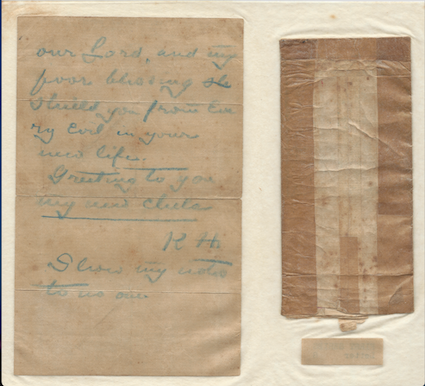 our Lord, and my
poor blessing sh
shield you from Eve
ry Evil in your
new life.
Greeting to you
my new chela
K H
Show my notes
to no one